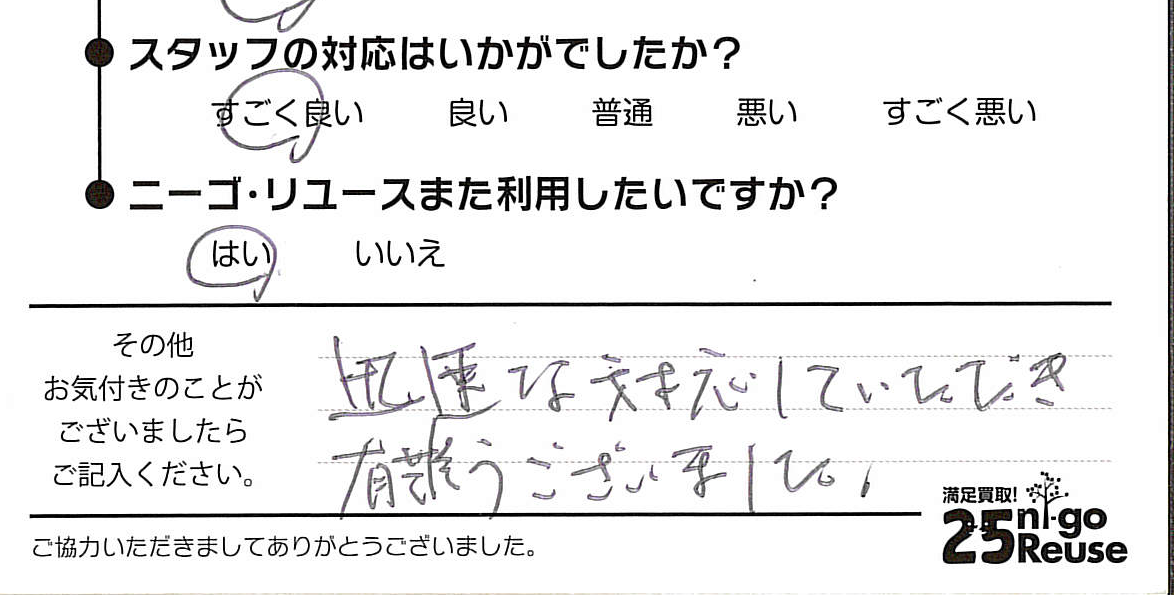 スタッフの対応はいかがでしたか？
すごく良い 良い 普通 悪い すごく悪い
ニーゴ・リユースまた利用したいですか？
はい いいえ
その他
お気付きのことが
ございましたら
ご記入ください。
迅速な対応していただき
有難うございました。
満足買取!
25 ni-go
Reuse
ご協力いただきましてありがとうございました。